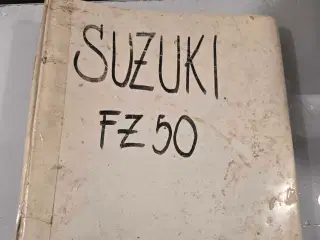 SUZUKI.
FZ 50